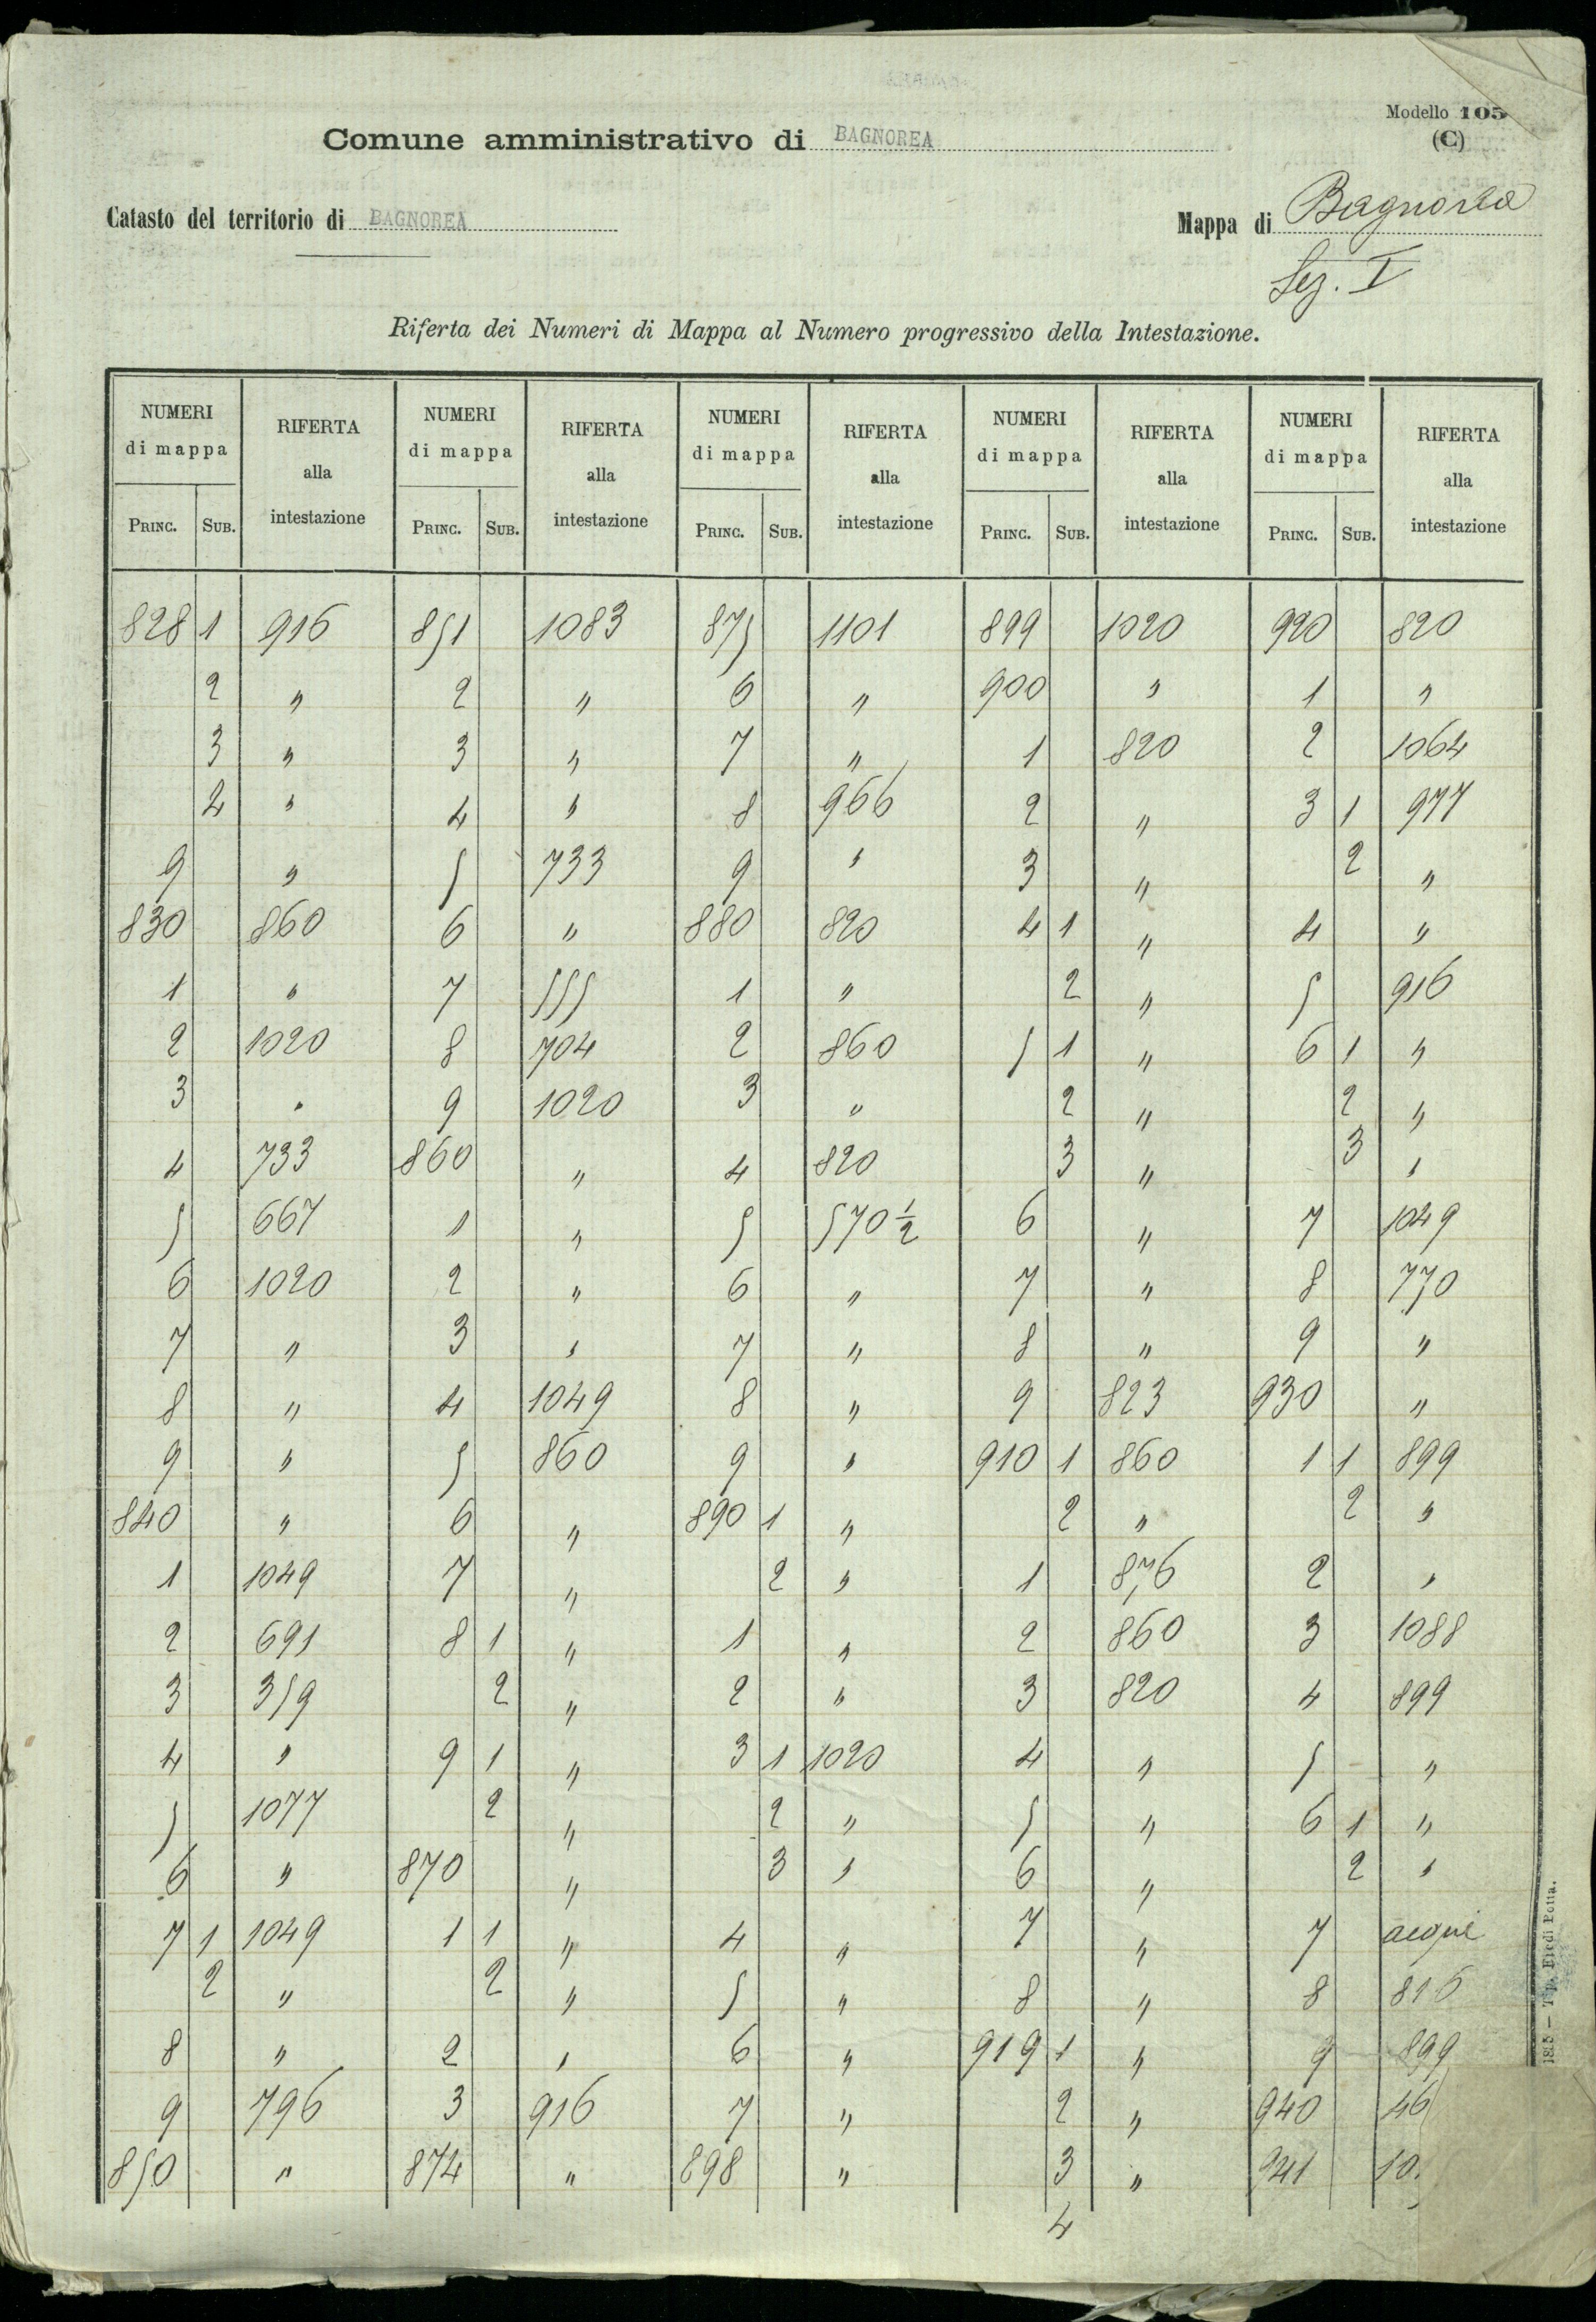 Modello 105
(C)
Comune amministrativo di BAGNOREA
Catasto del territorio di BAGNOREA Mappa di Bagnorea
Sez. I
Riferta dei Numeri di Mappa al Numero progressivo della Intestazione.
NUMERI di mappa RIFERTA alla intestazione NUMERI di mappa RIFERTA alla intestazione NUMERI di mappa RIFERTA alla intestazione NUMERI di mappa RIFERTA alla intestazione NUMERI di mappa RIFERTA alla intestazione
PRINC. SUB. PRINC. SUB. PRINC. SUB. PRINC. SUB. PRINC. SUB.
828 1 916 851 1083 875 1101 899 1020 920 820
2 " 2 " 6 " 900 " 1 "
3 " 3 " 7 " 1 820 2 1064
4 " 4 " 8 966 2 " 3 1 977
9 " 5 733 9 " 3 " 2 "
830 860 6 " 880 820 4 1 " 4 "
1 " 7 555 1 " 2 " 5 916
2 1020 8 704 2 860 5 1 " 6 1 "
3 " 9 1020 3 " 2 " 2 "
4 733 860 " 4 820 3 " 3 "
5 667 1 " 5 570 1/2 6 " 7 1049
6 1020 2 " 6 " 7 " 8 770
7 " 3 " 7 " 8 " 9 "
8 " 4 1049 8 " 9 823 930 "
9 " 5 860 9 " 910 1 860 1 1 899
840 " 6 " 890 1 " 2 " 2 "
1 1049 7 " 2 " 1 876 2 "
2 691 8 1 " 1 " 2 860 3 1088
3 359 2 " 2 " 3 820 4 899
4 " 9 1 " 3 1 1020 4 " 5 "
5 1077 2 " 2 " 5 " 6 1 "
6 " 870 " 3 " 6 " 2 "
7 1 1049 1 1 " 4 " 7 " 7
2 " 2 " 5 " 8 " 8 816
8 " 2 " 6 " 919 1 " 9 899
9 796 3 916 7 " 2 " 940
850 " 874 " 898 " 3 " 941
4